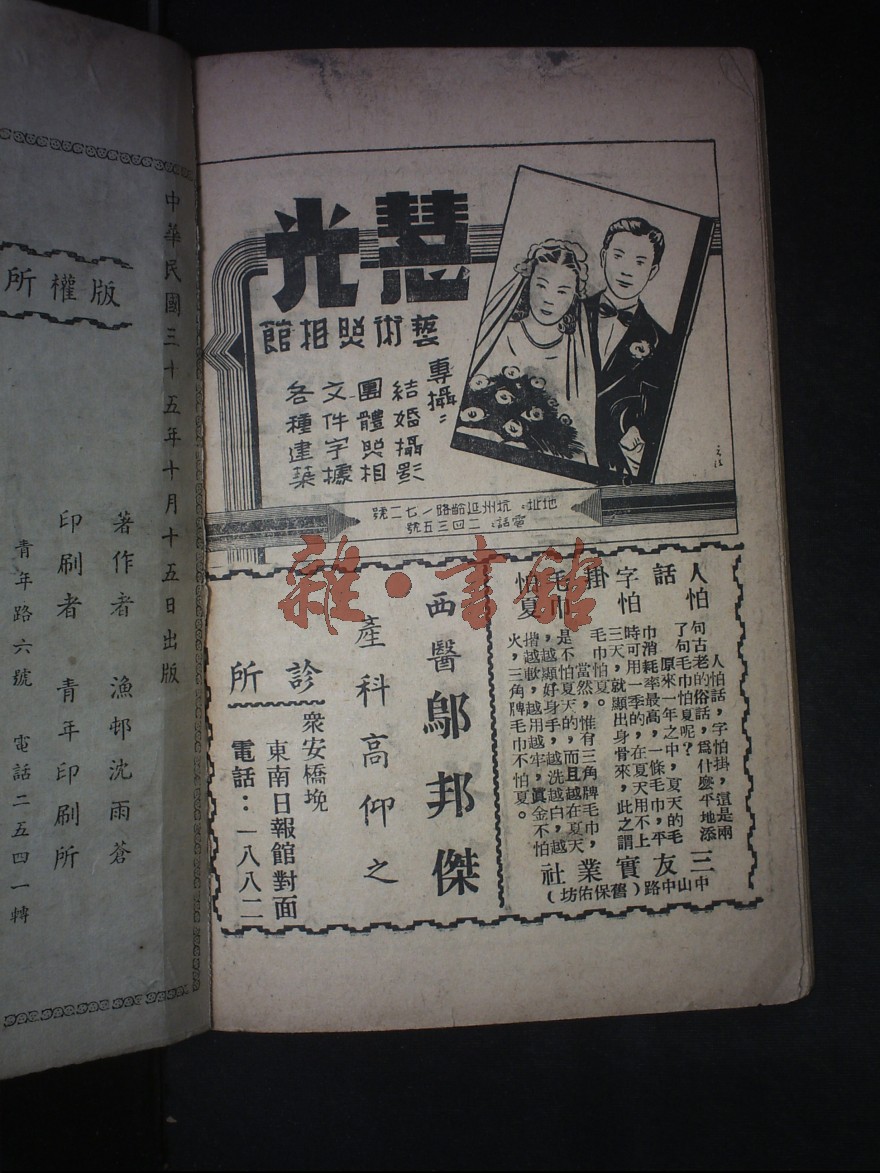 慧光
藝術照相館
專攝：
結婚攝影
團體照相
文件字據
各種建築
地址：杭州延齡路一七二號
電話：二四三五號
人怕話
字怕掛
毛巾怕夏
人怕話，字怕掛，這是兩
句古老的俗話，爲什麽平地添
了句毛巾怕夏呢？
原來一年之中，夏天的毛
巾消耗率最高，一條毛巾，平
時可用一季的，在夏天用不上
三天，就顯出身骨來，此之謂
毛巾怕夏。
當然，惟有三角牌毛巾，
是不怕夏天的，而且越在夏天
，越顯好身手，越洗越白，越
揩越軟，越用越牢，眞金不怕
火，三角牌毛巾不怕夏。
三友實業社
中山中路（舊保佑坊）
西醫鄔邦傑
產科高仰之
診所
衆安橋堍
東南日報館對面
電話：一八八二
雜·書館
中華民國三十五年十月十五日出版
版權所
著作者 漁邨沈雨蒼
印刷者 青年印刷所
青年路六號 電話二五四一轉